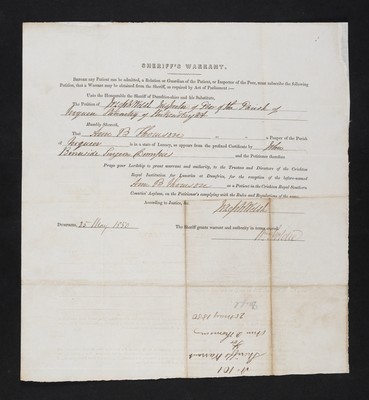 SHERIFF'S WARRANT.
Before any Patient can be admitted, a Relation or Guardian of the Patient, or Inspector of the Poor, must subscribe the following
Petition, that a Warrant may be obtained from the Sheriff, as required by Act of Parliament:—
Unto the Honourable the Sheriff of Dumfries-shire and his Substitute,
The Petition of Joseph Welsh Inspector of Poor of the Parish of
of Kirkcudbright
Humbly Sheweth,
That Ann B Thomson a Pauper of the Parish
of is in a state of Lunacy, as appears from the prefixed Certificate by John
Burnside Surgeon Dumfries and the Petitioner therefore
Prays your Lordship to grant warrant and authority, to the Trustees and Directors of the Crichton
Royal Institution for Lunatics at Dumfries, for the reception of the before-named
Ann B Thomson as a Patient in the Crichton Royal Southern
Counties Asylum, on the Petitioner's complying with the Rules and Regulations of the same.
According to Justice, &c.
Joseph Welsh
DUMFRIES, 25 May 1850
The Sheriff grants warrant and authority in terms craved.
No 101
Sheriff's Warrant
for
Ann B Thomson
25 May 1850